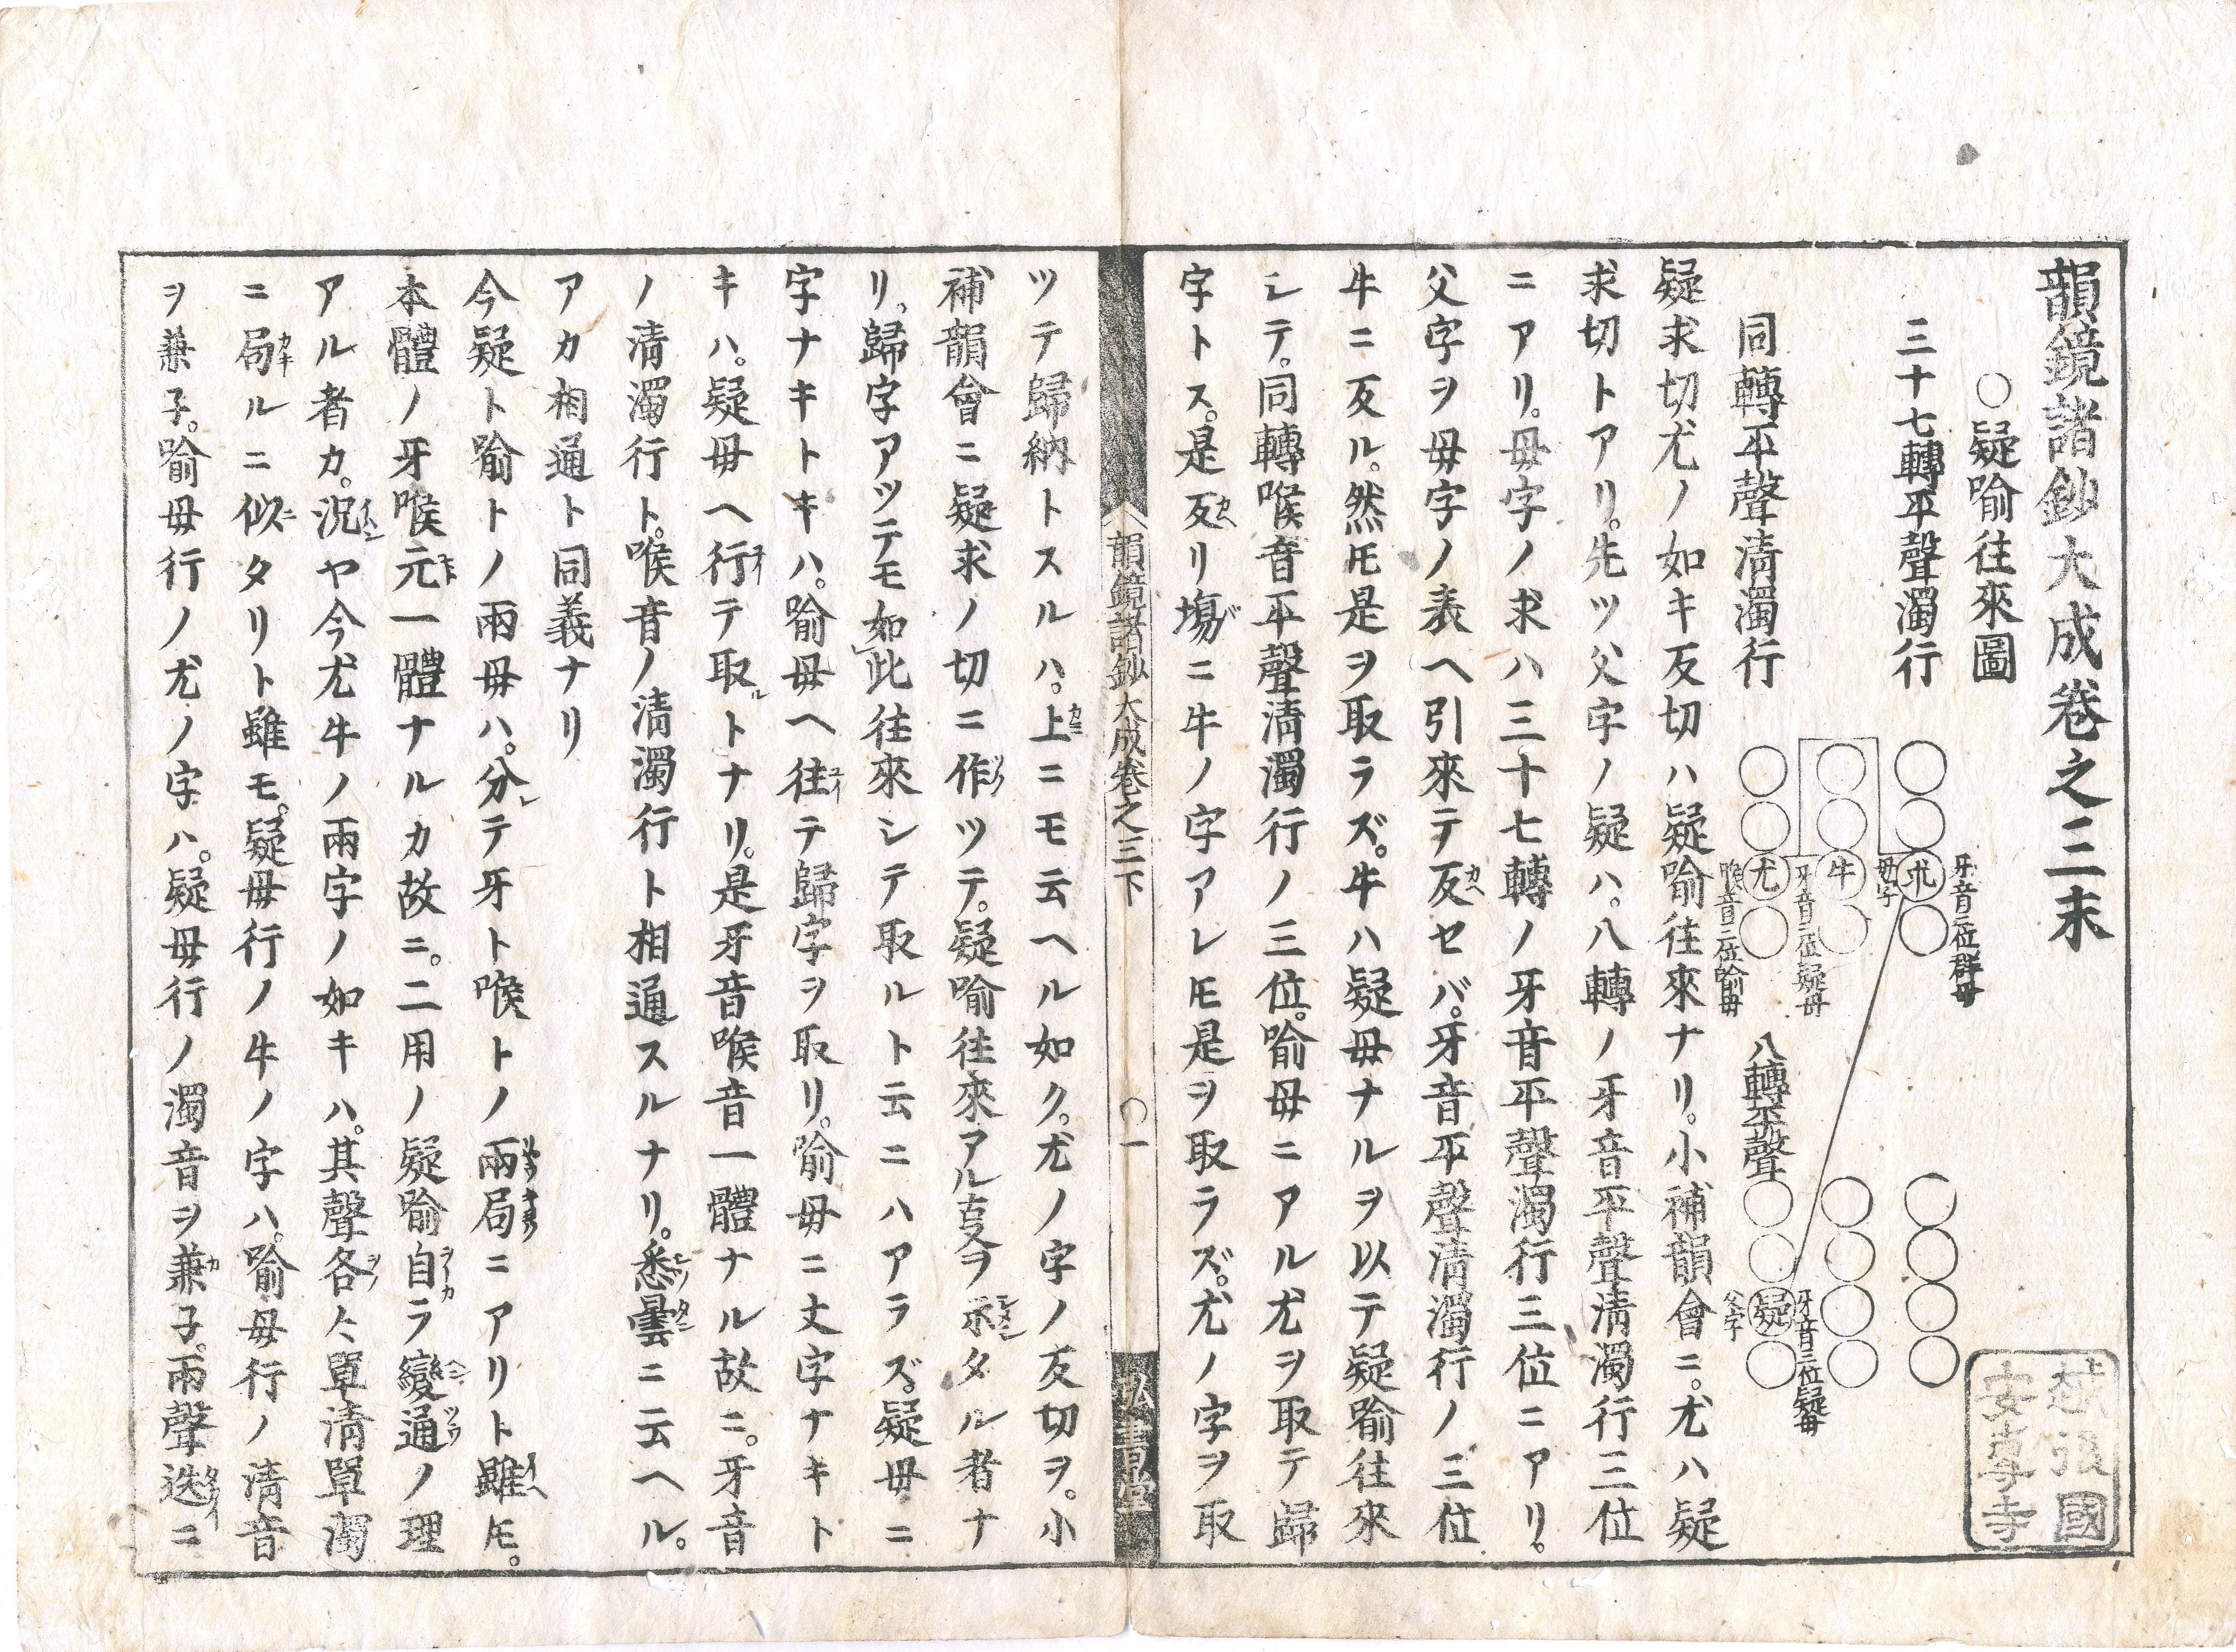 韻鏡諸鈔大成卷之三末
〇疑喻往來圖
三十七轉平聲濁行
同轉平聲清濁行
牙音三位群母
求
母字
牛
牙音三位疑母
尤
喉音三位喻母
八轉平聲
牙音三位疑母
疑
父字
疑求切尤ノ如キ反切ハ疑喻往來ナリ。小補韻會ニ。尤ハ疑
求切トアリ。先ツ父字ノ疑ハ。八轉ノ牙音平聲清濁行三位
ニアリ。母字ノ求ハ三十七轉ノ牙音平聲濁行三位ニアリ。
父字ヲ母字ノ表ヘ引來テ反カヘセバ。牙音平聲清濁行ノ三位
牛ニ反ル。然𪜈是ヲ取ラズ。牛ハ疑母ナルヲ以テ疑喻往來
シテ。同轉喉音平聲清濁行ノ三位。喻母ニアル尤ヲ取テ歸
字トス。是反カヘリ塲バニ牛ノ字アレ𪜈是ヲ取ラズ。尤ノ字ヲ取
韻鏡諸鈔大成卷之三下
〇一
弘書堂
ツテ歸納トスルハ。上カミニモ云ヘル如ク。尤ノ字ノ反切ヲ。小
補韻會ニ疑求ノ切ニ作ツクツテ。疑喻往來アル㕝ヲ示シメシタル者ナ
リ。歸字アツテモ如レ此往來シテ取ルト云ニハアラズ。疑母ニ
字ナキトキハ。喻母ヘ往ユイテ歸字ヲ取リ。喻母ニ文字ナキト
キハ。疑母ヘ行ユイテ取ルトナリ。是牙音喉音一體ナル故ニ。牙音
ノ清濁行ト。喉音ノ清濁行ト相通スルナリ。悉シツ曇タンニ云ヘル。
アカ相通ト同義ナリ
今疑ト喻トノ兩母ハ。分レテ牙ト喉トノ兩リヤウ局キヨクニアリト雖イヘ𪜈。
本體ノ牙喉元モト一體ナルカ故ニ。二用ノ疑喻自ヲノツカラ變ヘン通ツウノ理
アル者カ。況イハンヤ今尤牛ノ兩字ノ如キハ。其聲各ヲノ々單清單濁
ニ局カギルニ似ニタリト雖モ。疑母行ノ牛ノ字ハ。喻母行ノ清音
ヲ兼子。喻母行ノ尤ノ字ハ。疑母行ノ濁音ヲ兼カ子。兩聲迭タガイニ
越後國
安專寺